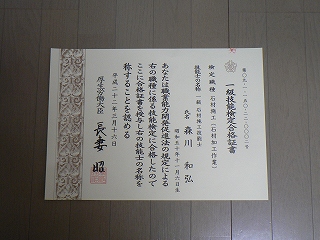 一級技能検定合格証書
検定職種 石材施工(石材加工作業)
技能士の名称 一級石材施工技能士
氏名 森川 和弘
昭和五十年十一月六日生
あなたは職業能力開発促進法の規定による
右の職種に係る技能検定に合格したので
ここに合格証書を授与し右の技能士の名称を
称することを認める
平成二十二年三月十六日
厚生労働大臣 長妻 昭